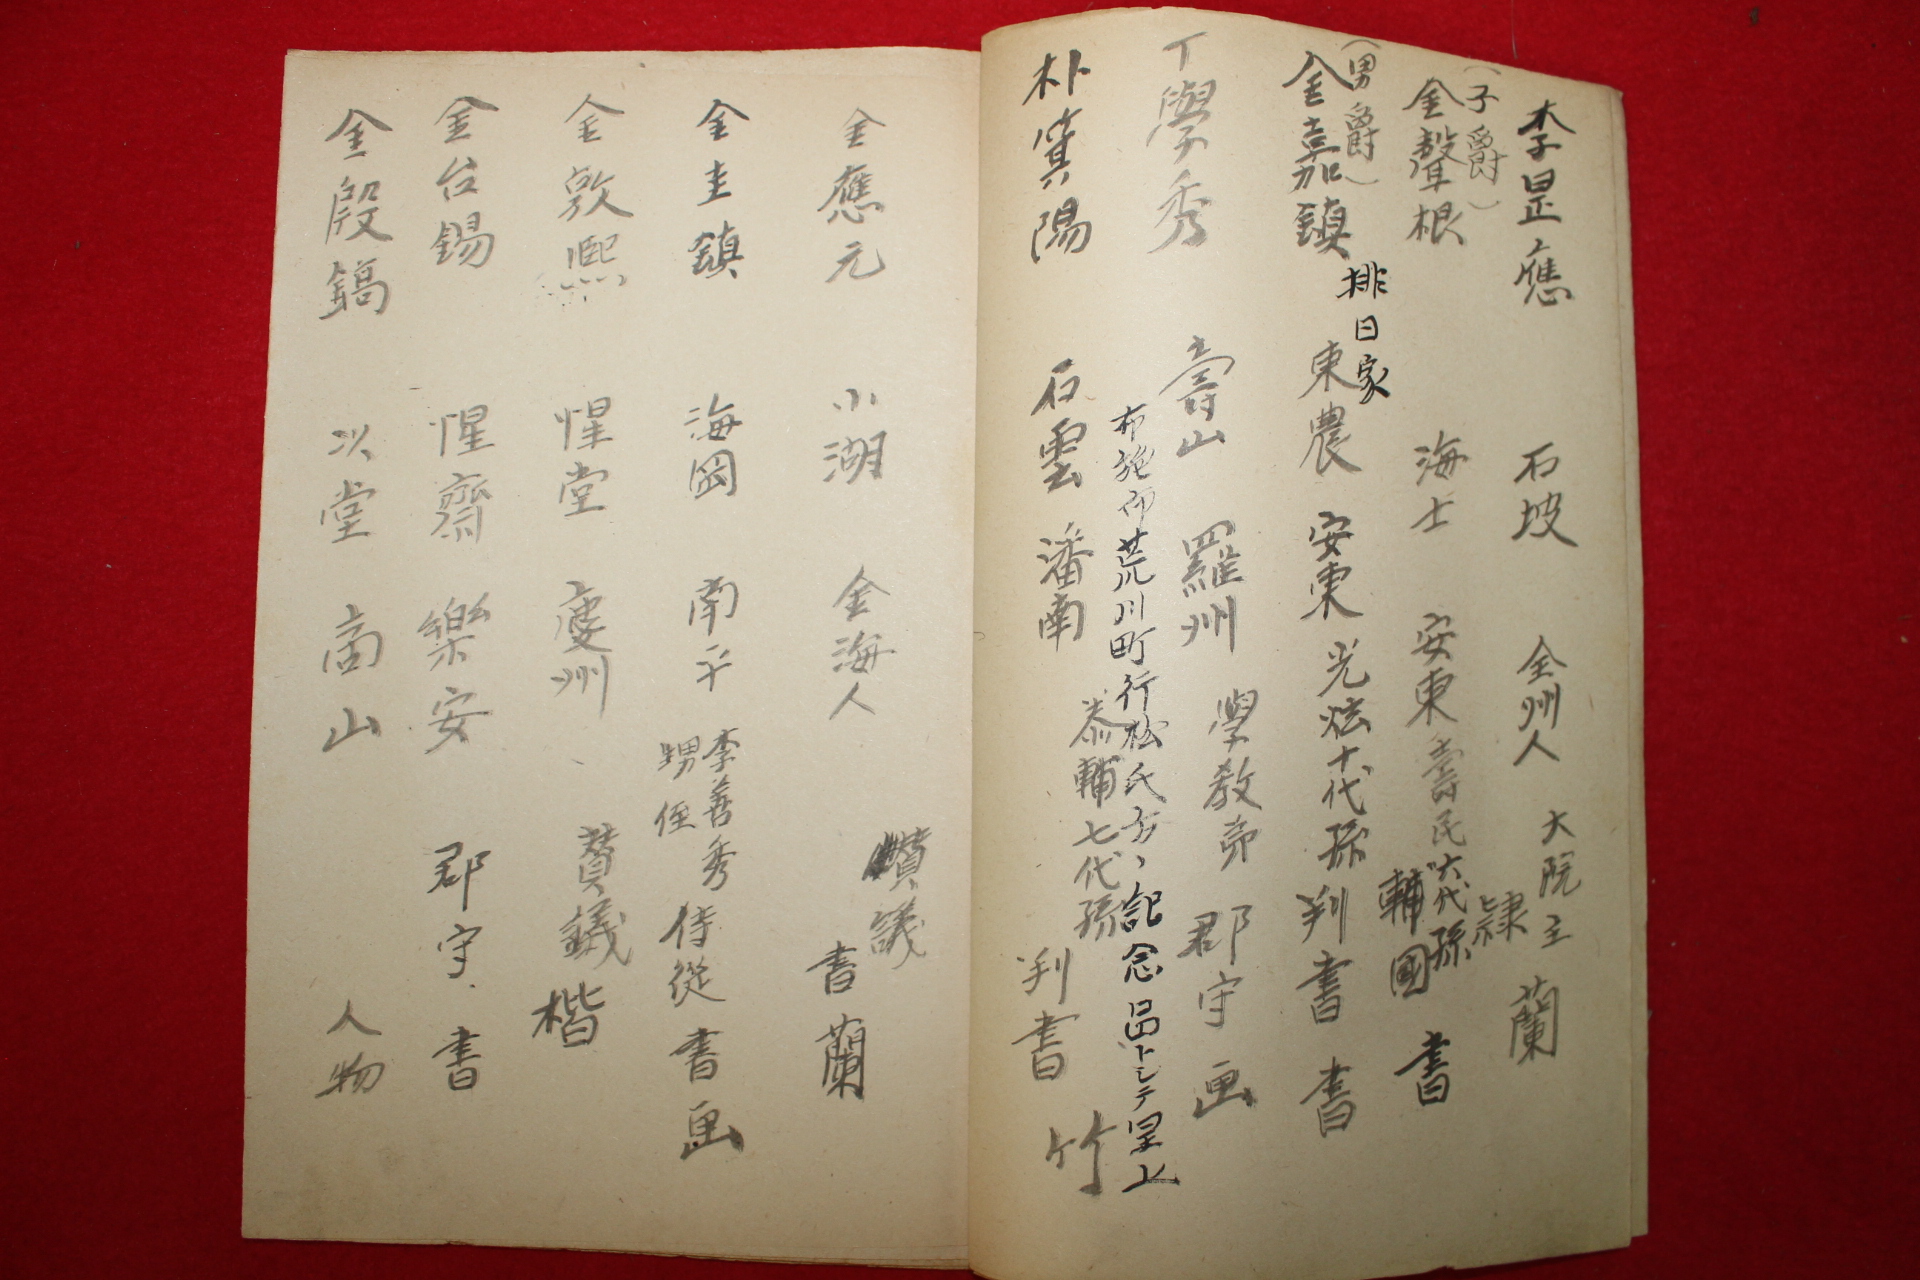 李昰應 石坡 全州人 大院王 隷 蘭
(子爵)
金聲根 海士 安東 壽民六代孫 輔國 書
(男爵)
金嘉鎮 東農 安東 光炫十代孫 判書 書
排日家
丁學秀 壽山 羅州 學敎弟 郡守 画
布施仰荒川町行松氏方、記念品トシテ呈上
朴箕陽 石雲 潘南 泰輔七代孫 判書 竹
金應元 小湖 金海人 讃議 書 蘭
金圭鎮 海岡 南平 李善秀甥侄 侍從 書画
金敦熙 惺堂 慶州 賛議 楷
金台錫 惺齋 樂安 郡守 書
金殷鎬 以堂 高山 人物